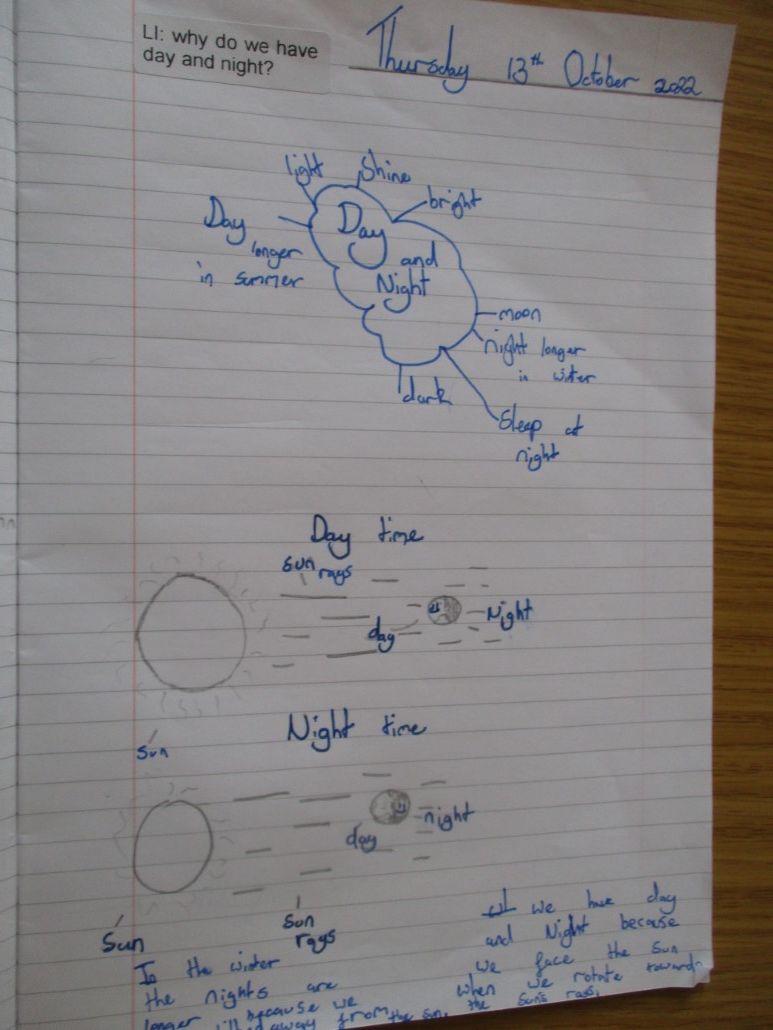 LI: why do we have
day and night?
Thursday 13th October 2022
light
Shine
bright
Day
longer
in summer
Day
and
Night
moon
night longer
in winter
dark
Sleep at
night
Day time
Sun
rays
day
Night
Sun
Night time
day
night
Sun
Sun
rays
In the winter
the nights are
longer because we
away from the sun.
we have day
and Night because
we face the sun
when we rotate towards
the sun's